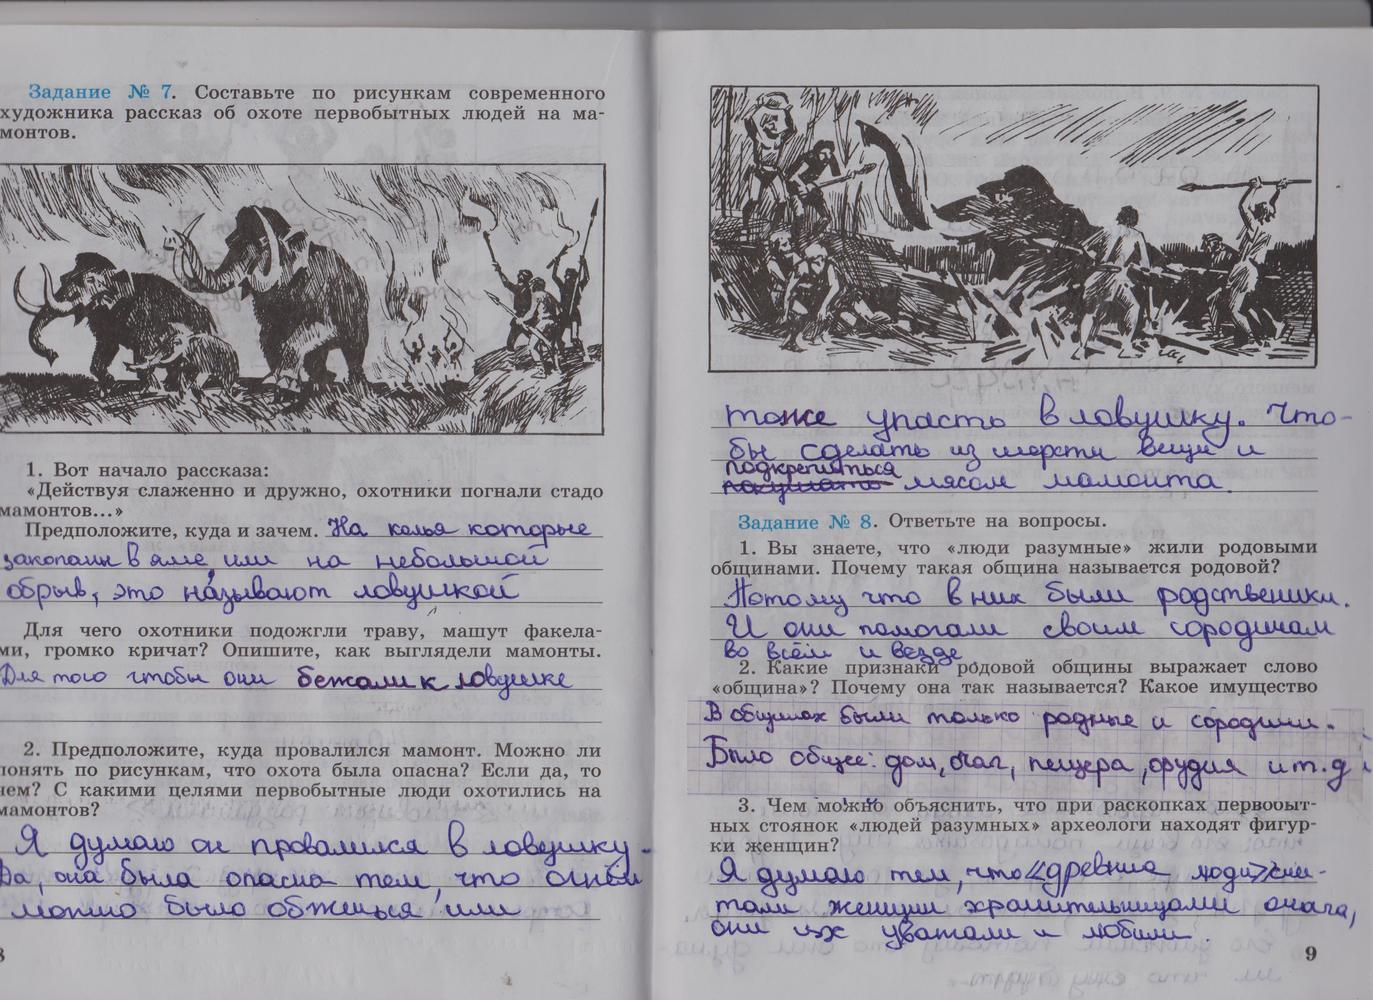 Задание № 7. Составьте по рисункам современного
художника рассказ об охоте первобытных людей на ма-
монтов.
1. Вот начало рассказа:
«Действуя слаженно и дружно, охотники погнали стадо
мамонтов...»
Предположите, куда и зачем. На колья которые
закопали в яме, или на небольшой
обрыв, это называют ловушкой
Для чего охотники подожгли траву, машут факела-
ми, громко кричат? Опишите, как выглядели мамонты.
Для того чтобы они бежали к ловушке
2. Предположите, куда провалился мамонт. Можно ли
понять по рисункам, что охота была опасна? Если да, то
чем? С какими целями первобытные люди охотились на
мамонтов?
Я думаю он провалился в ловушку.
Да, она была опасна тем, что огнём
можно было обжечься или
8
тоже упасть в ловушку. Что-
бы сделать из шерсти вещи и
подкрепиться
мясом мамонта.
Задание № 8. Ответьте на вопросы.
1. Вы знаете, что «люди разумные» жили родовыми
общинами. Почему такая община называется родовой?
Потому что в них были родственики.
И они помогали своим сородичам
во всём и везде
2. Какие признаки родовой общины выражает слово
«община»? Почему она так называется? Какое имущество
В общинах были только родные и сородичи.
Было общее: дом, очаг, пещера, орудия и т.д
3. Чем можно объяснить, что при раскопках первобыт-
ных стоянок «людей разумных» археологи находят фигур-
ки женщин?
Я думаю тем, что «древние люди» счи-
тали женщин хранительницами очага,
они их уважали и любили.
9